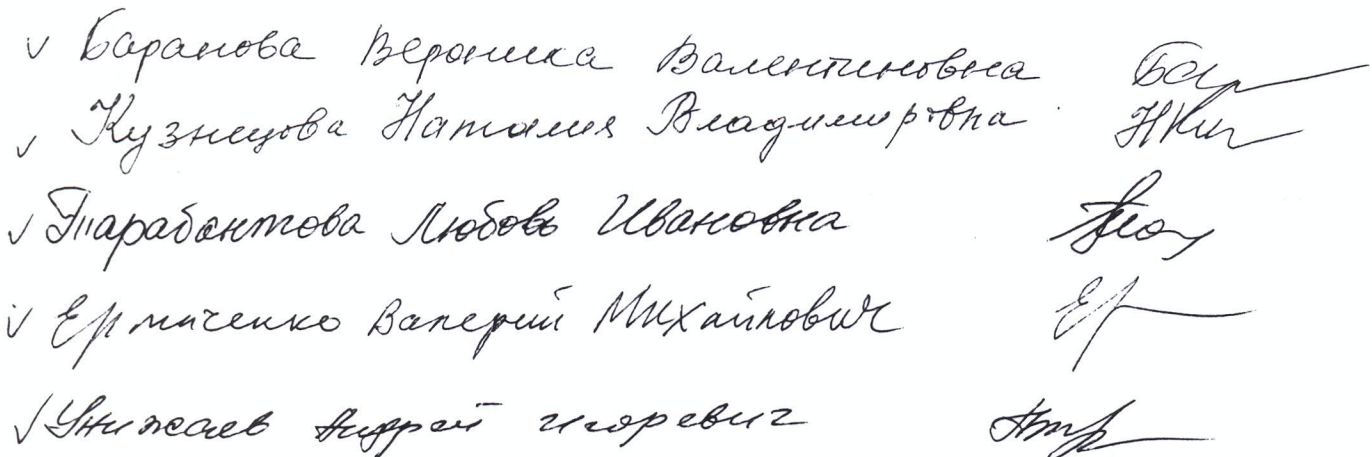 ✓ Баранова Вероника Валентиновна Бар
✓ Кузнецова Наталия Владимировна НКuz
✓ Тарабантова Любовь Ивановна
✓ Ермиченко Валерий Михайлович Ер
✓ Андрей Игоревич